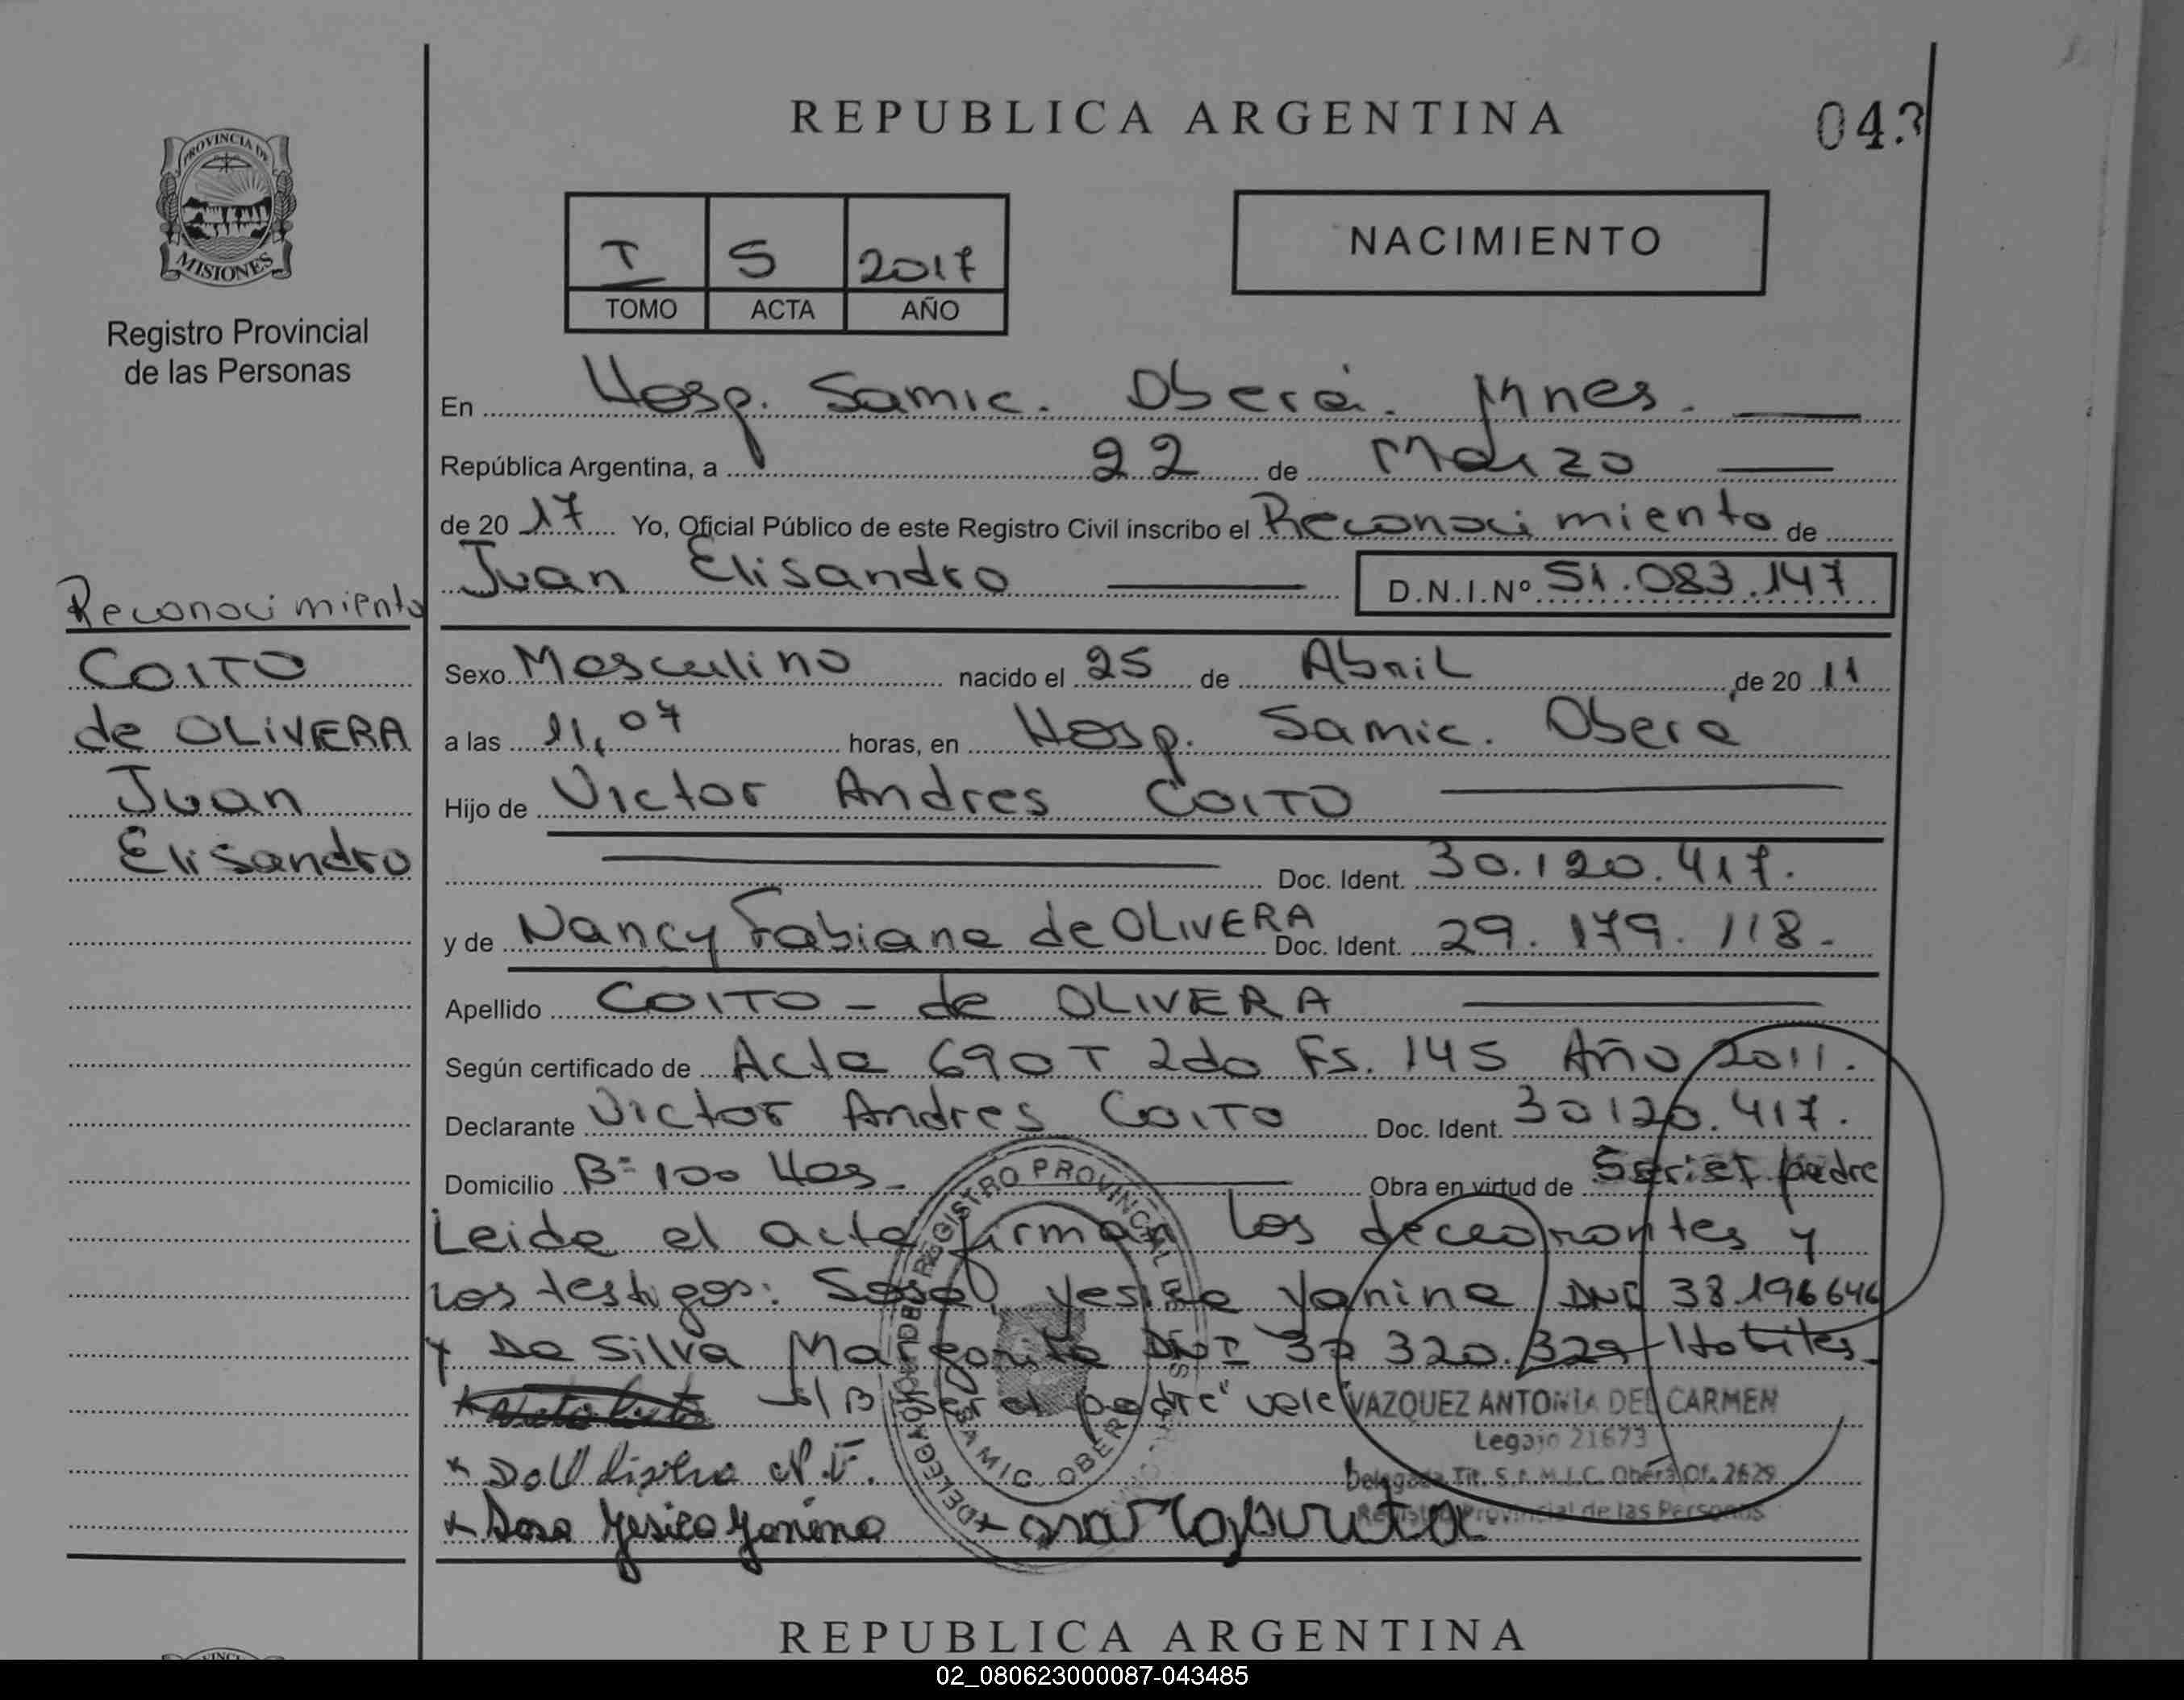 REPUBLICA ARGENTINA
043
PROVINCIA DE
MISIONES
Registro Provincial
de las Personas
I 5 2017
TOMO ACTA AÑO
NACIMIENTO
En Hosp. Samic. Oberá. Mnes.
República Argentina, a 22 de Marzo
de 20 17 Yo, Oficial Público de este Registro Civil inscribo el Reconocimiento de
Juan Elisandro D.N.I.Nº 51.083.147
Reconocimiento
COITO
de OLIVERA
Juan
Elisandro
Sexo Masculino nacido el 25 de Abril de 20 11
a las 11,07 horas, en Hosp. Samic. Obera
Hijo de Victor Andres COITO
Doc. Ident. 30.120.417.
y de Nancy Fabiana de OLIVERA Doc. Ident. 29.179.118.
Apellido COITO - de OLIVERA
Según certificado de Acta 690 T 2do Fs. 145 Año 2011.
Declarante Victor Andres COITO Doc. Ident. 30120.417.
Domicilio Bº 100 Has. Obra en virtud de Ser el padre
Leida el acta firman los declarantes y
los testigos: Sosa, Yesica Yanina DNI 38.196646
y Da Silva Margarita DNI 320.329 Habiles.
S/B ser el padre" vale
VAZQUEZ ANTONIA DEL CARMEN
Legajo 21673
Delegada Tit. S.A.M.I.C. Oberá Of. 2629
Registro Provincial de las Personas
REGISTRO PROVINCIAL DE
DELEGACION
SAMIC OBERA
Sosa Yesica Yanina
REPUBLICA ARGENTINA
02_080623000087-043485